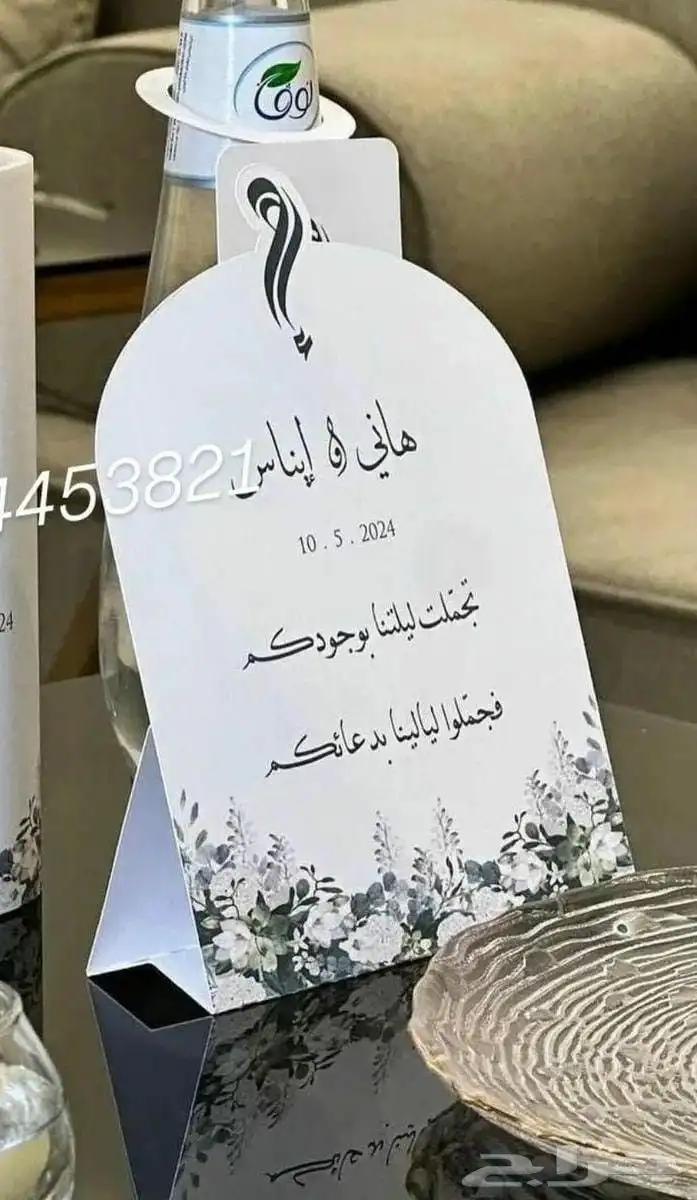 نوفا
هاني & إيناس
10 . 5 . 2024
تجمّلت ليلتنا بوجودكم
فجمّلوا ليالينا بدعائكم
4453821
24
حراج